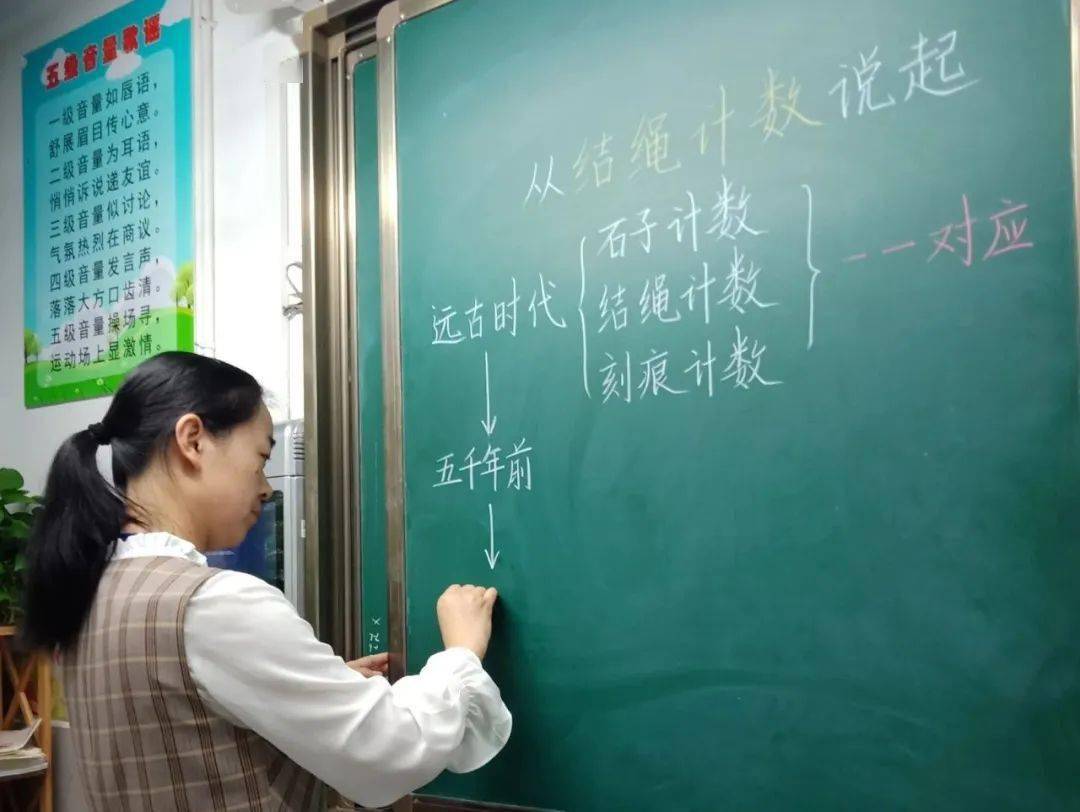 五级音量歌谣
一级音量如唇语，
舒展眉目传心意。
二级音量为耳语，
悄悄诉说递友谊。
三级音量似讨论，
气氛热烈在商议。
四级音量发言声，
落落大方口齿清。
五级音量操场寻，
运动场上显激情。
从结绳计数说起
远古时代
石子计数
结绳计数
刻痕计数
一一对应
五千年前